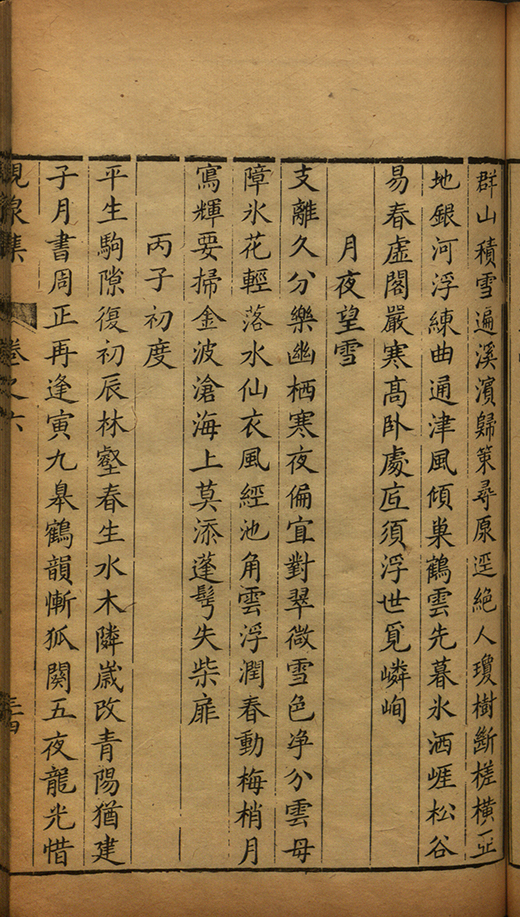 群山積雪遍溪濱歸策尋原逕絕人瓊樹斷槎橫正
地銀河浮練曲通津風傾巢鶴雲先暮氷洒崕松谷
易春虛閣嚴寒高卧處叵須浮世覓嶙峋
月夜望雪
支離久分樂幽栖寒夜偏宜對翠微雪色净分雲母
障氷花輕落水仙衣風經池角雲浮潤春動梅梢月
寫輝要掃金波滄海上莫添蓬髩失柴扉
丙子初度
平生駒隙復初辰林壑春生水木隣歲改青陽猶建
子月書周正再逢寅九皋鶴韻慚狐闋五夜龍光惜
集 卷之六 三四